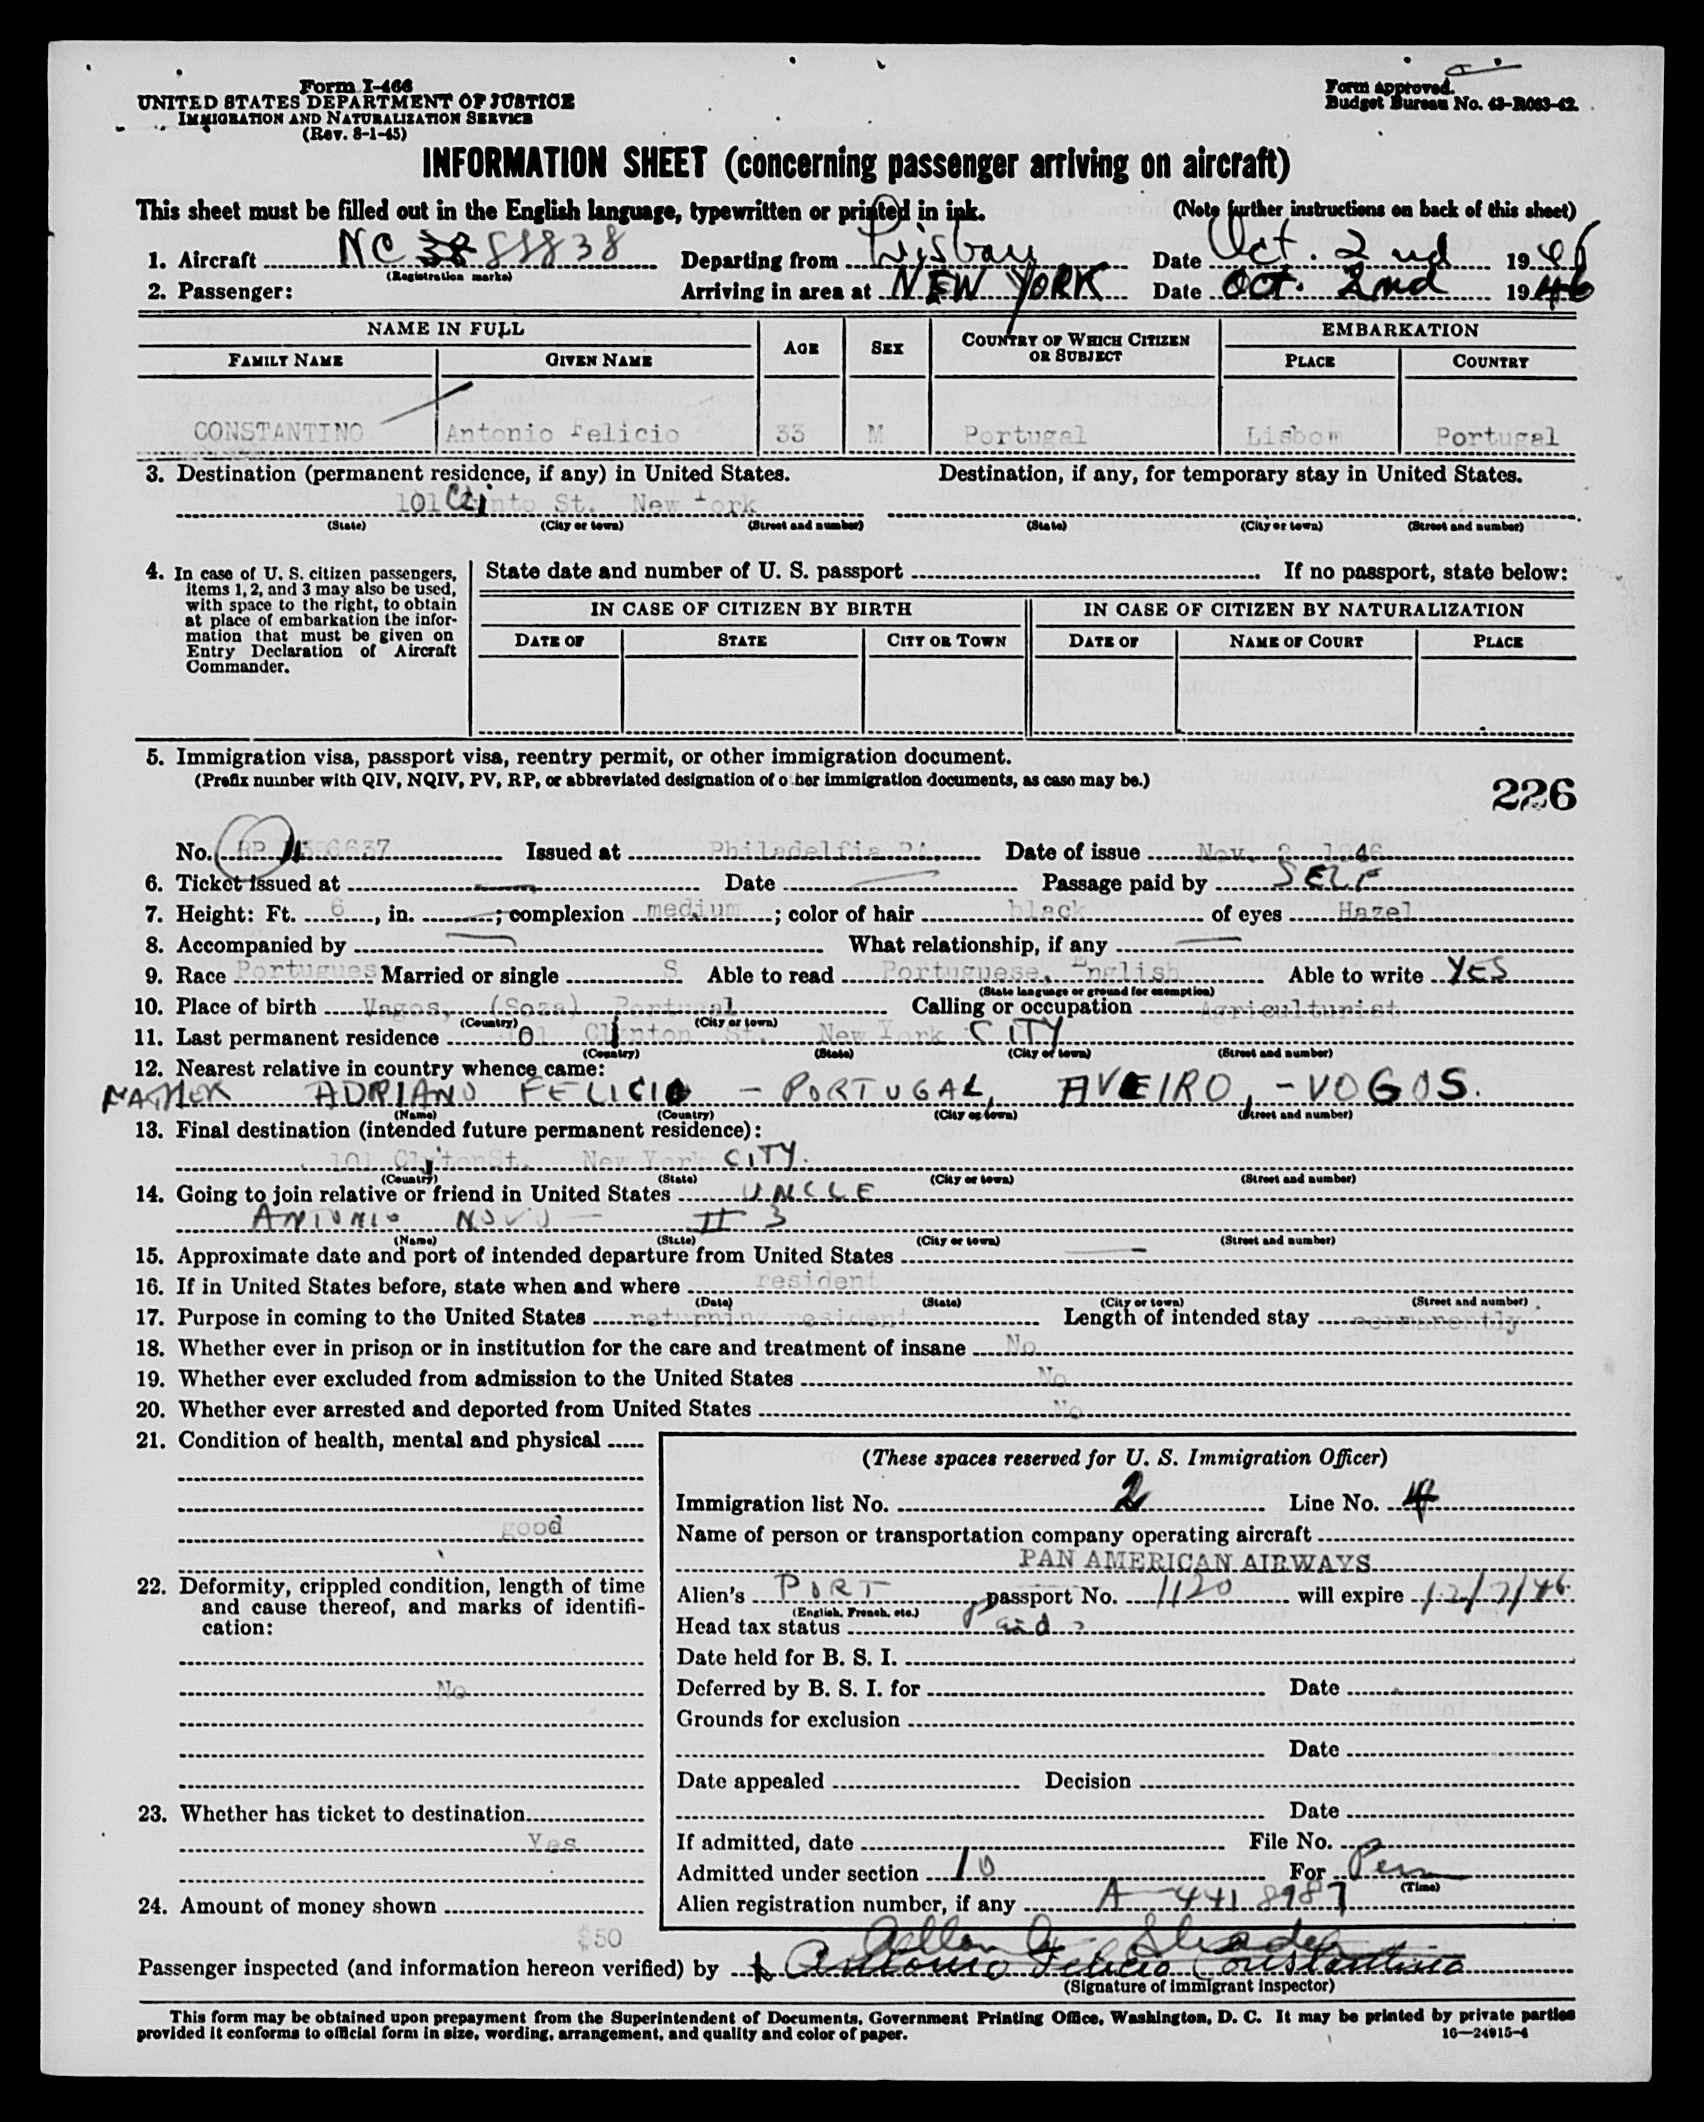 Form I-466
UNITED STATES DEPARTMENT OF JUSTICE
IMMIGRATION AND NATURALIZATION SERVICE
(Rev. 8-1-45)
Form approved.
Budget Bureau No. 43-R063-42.
INFORMATION SHEET (concerning passenger arriving on aircraft)
This sheet must be filled out in the English language, typewritten or printed in ink. (Note further instructions on back of this sheet)
1. Aircraft NC 88838 Departing from Lisbon Date Oct. 2nd 1946
(Registration marks)
2. Passenger: Arriving in area at NEW YORK Date Oct. 2nd 1946
NAME IN FULL AGE SEX COUNTRY OF WHICH CITIZEN OR SUBJECT EMBARKATION
FAMILY NAME GIVEN NAME PLACE COUNTRY
CONSTANTINO Antonio Felicio 33 M Portugal Lisbom Portugal
3. Destination (permanent residence, if any) in United States. Destination, if any, for temporary stay in United States.
101 Clinto St. New York
(State) (City or town) (Street and number) (State) (City or town) (Street and number)
4. In case of U. S. citizen passengers, items 1, 2, and 3 may also be used, with space to the right, to obtain at place of embarkation the information that must be given on Entry Declaration of Aircraft Commander.
State date and number of U. S. passport If no passport, state below:
IN CASE OF CITIZEN BY BIRTH IN CASE OF CITIZEN BY NATURALIZATION
DATE OF STATE CITY OR TOWN DATE OF NAME OF COURT PLACE
5. Immigration visa, passport visa, reentry permit, or other immigration document.
(Prefix number with QIV, NQIV, PV, RP, or abbreviated designation of other immigration documents, as case may be.)
226
No. RP Issued at Philadelfia PA. Date of issue Nov. 1946
6. Ticket issued at — Date — Passage paid by SELF
7. Height: Ft. 6, in. ; complexion medium; color of hair black of eyes Hazel
8. Accompanied by — What relationship, if any —
9. Race Portugues Married or single S Able to read Portuguese, English Able to write YES
(State language or ground for exemption)
10. Place of birth Vagos, (Soza) Portugal Calling or occupation Agriculturist
(Country) (City or town)
11. Last permanent residence 101 Clinton St. New York CITY
(Country) (State) (City or town) (Street and number)
12. Nearest relative in country whence came:
ADRIANO FELICIO — PORTUGAL, AVEIRO, — VOGOS.
(Name) (Country) (City or town) (Street and number)
13. Final destination (intended future permanent residence):
101 Clinton St. New York CITY.
(Country) (State) (City or town) (Street and number)
14. Going to join relative or friend in United States UNCLE
ANTONIO NOVO —
(Name) (State) (City or town) (Street and number)
15. Approximate date and port of intended departure from United States —
16. If in United States before, state when and where resident
(Date) (State) (City or town) (Street and number)
17. Purpose in coming to the United States returning resident Length of intended stay permanently
18. Whether ever in prison or in institution for the care and treatment of insane No
19. Whether ever excluded from admission to the United States No
20. Whether ever arrested and deported from United States No
21. Condition of health, mental and physical
good
22. Deformity, crippled condition, length of time and cause thereof, and marks of identification:
No
23. Whether has ticket to destination
Yes
24. Amount of money shown
$50
(These spaces reserved for U. S. Immigration Officer)
Immigration list No. 2 Line No. 4
Name of person or transportation company operating aircraft
PAN AMERICAN AIRWAYS
Alien's PORT passport No. 1120 will expire 12/7/46
(English, French, etc.)
Head tax status Paid
Date held for B. S. I.
Deferred by B. S. I. for Date
Grounds for exclusion
Date
Date appealed Decision
Date
If admitted, date File No.
Admitted under section 10 For Perm
(Time)
Alien registration number, if any A-4418987
Passenger inspected (and information hereon verified) by Antonio Felicio Constantino
(Signature of immigrant inspector)
This form may be obtained upon prepayment from the Superintendent of Documents, Government Printing Office, Washington, D. C. It may be printed by private parties
provided it conforms to official form in size, wording, arrangement, and quality and color of paper. 16—24915-4